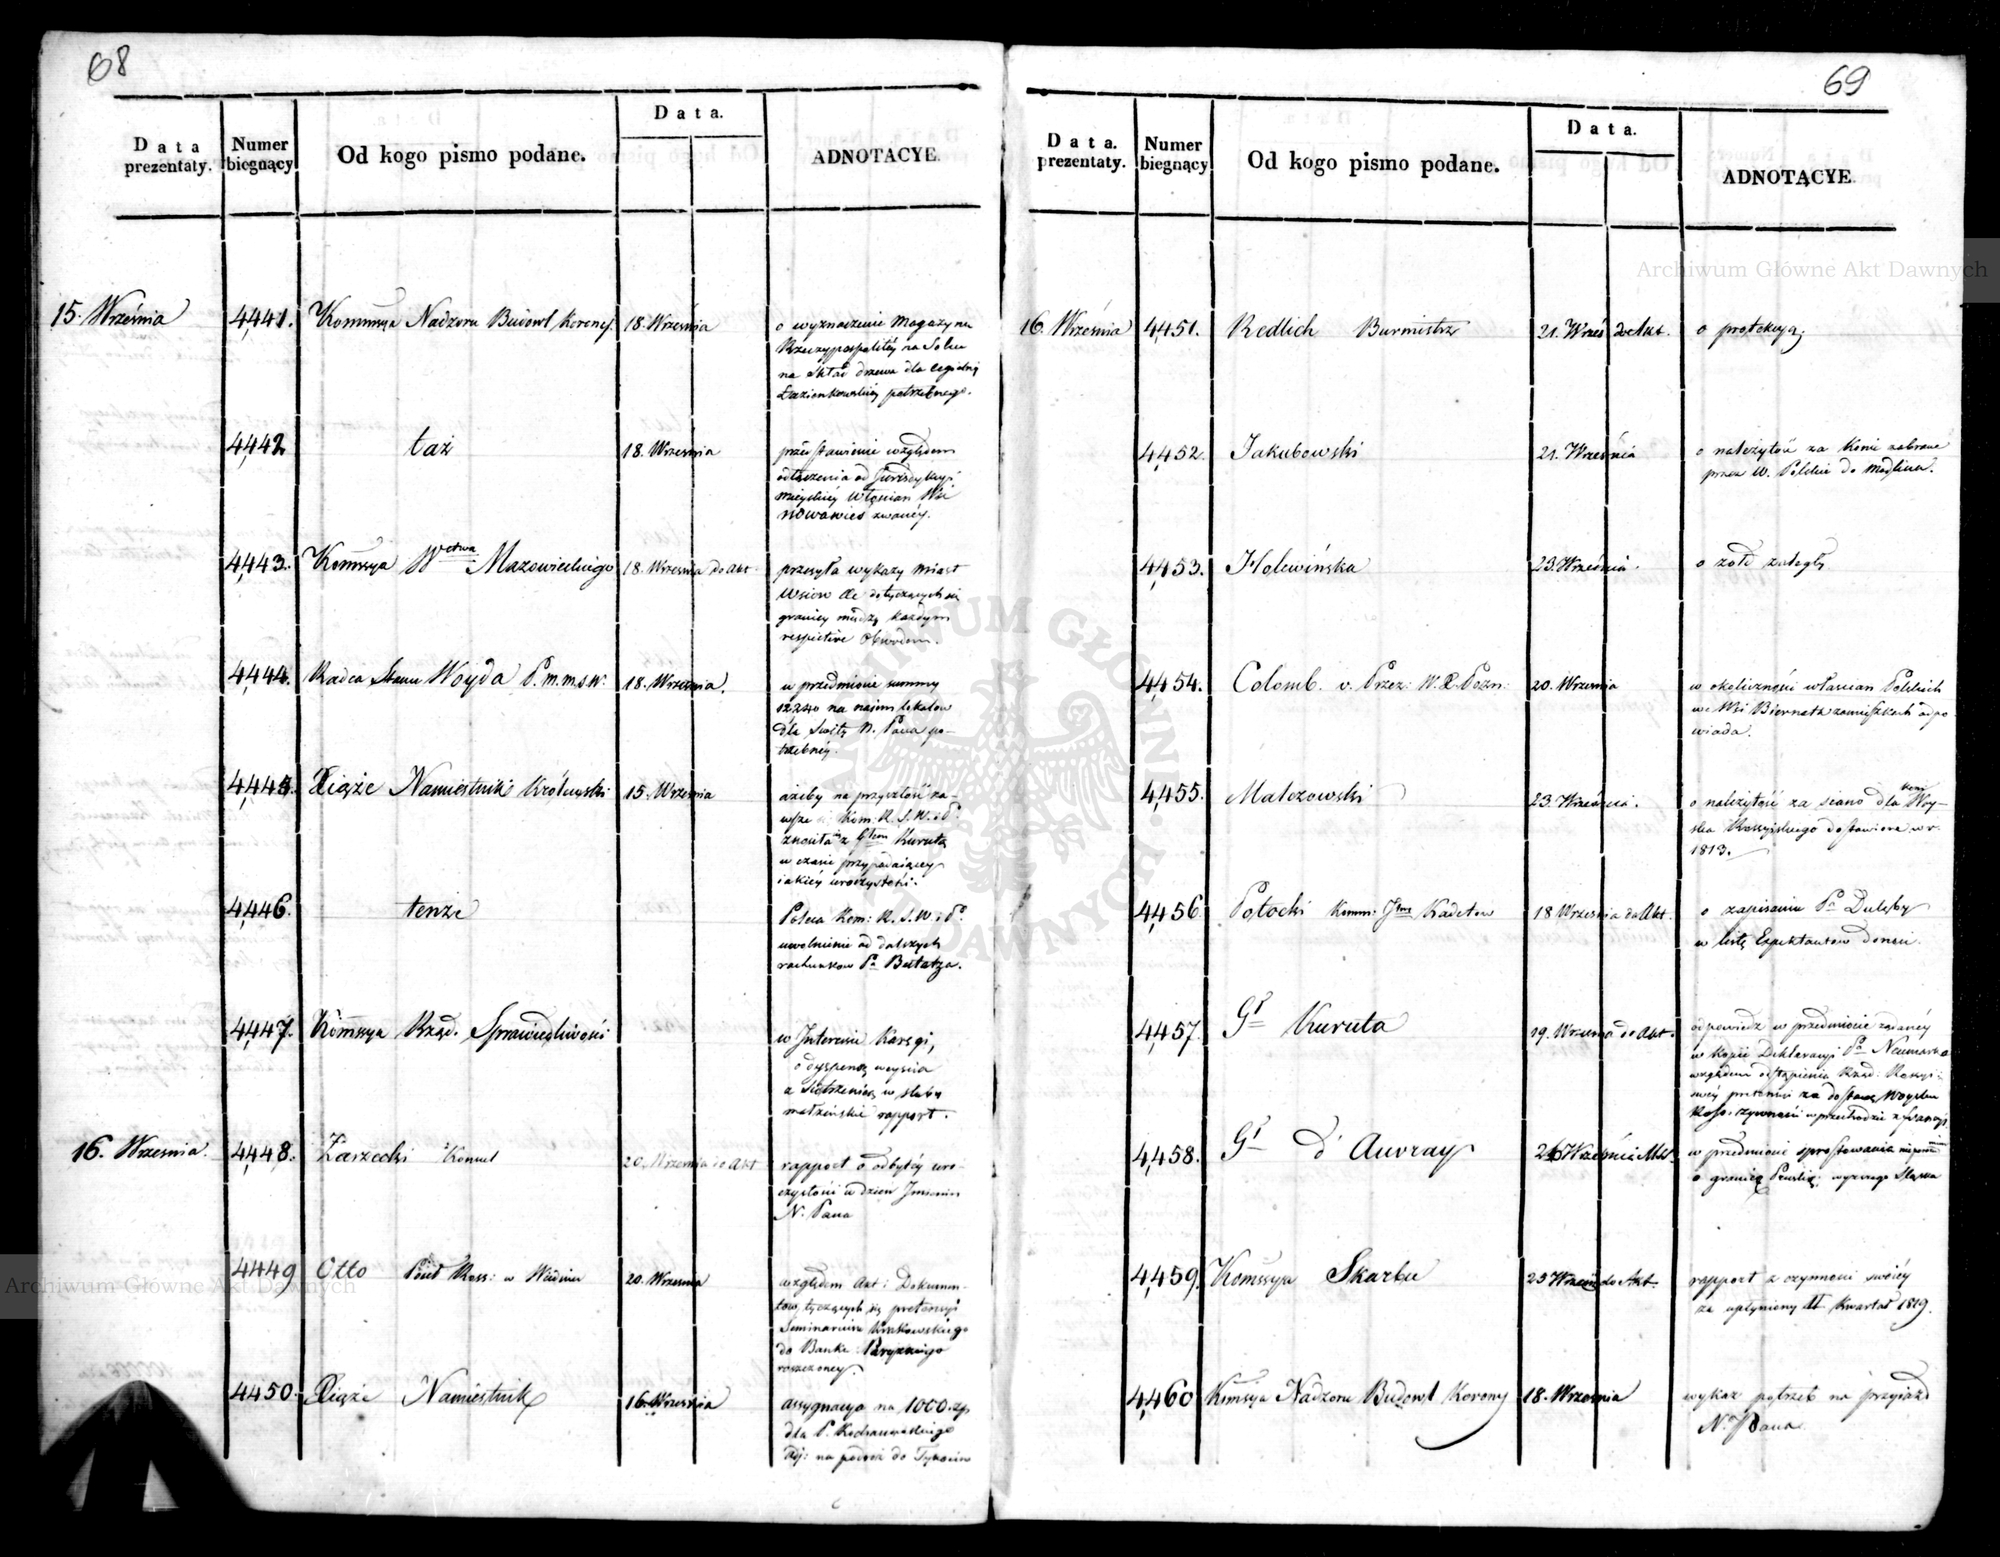 68
Data prezentaty.
Numer biegnący
Od kogo pismo podane.
Data.
ADNOTACYE.
15. Września 4441. Kommssya Nadzoru Budowl Koronej 18. Września o wyznaczenie Magazynu
Rzeczypospolitéy na Solcu
na Skład drzewa dla cegielni
Łazienkowskiéy potrzebnego.
4442 taż 18. Września przedstawienie względem
odłączenia od Jurisdykcyi
mieyskiéy Włościan Wsi
Nowawieś zwanéy.
4443. Kommssya Wctwa Mazowieckiego 18. Września do Akt przesyła wykazy miast
Wsiow &c dotyczących się
granicy między każdym
respective Obwodem.
4444. Radca Stanu Woyda P.m.m.s.w. 18. Września. w przedmiocie summy
12240 na najem lokalow
dla Świty N. Pana po-
trzebnéy.
4445. Xiąże Namiestnik Królewski 15. Września ażeby na przyszłość za-
wsze Kom: R. S. W. i P.
znosiła z Głem Kurutą
w czasie przypadaiącey
iakiéy uroczystości.
4446. tenże Poleca Kom: R. S. W. i P.
uwolnienie od dalszych
rachunkow Pa
4447. Kommssya Rząd. Sprawiedliwości w Interesie Karsgi,
o dyspensę weyscia
z Siostrzenicą w śluby
małżeńskie rapport.
16. Września. 4448. Zarzecki Konsul 20. Września do Akt rapport o odbytéy uro-
czystości w dzień Jmienin
N. Pana
4449 Otto Poseł Ross: w Wiedniu 20. Września względem Akt: Dokumen-
tow, tyczących się pretensyi
Seminarium Krakowskiego
do Banku Paryzkiego
roszczoney.
4450. Xiąże Namiestnik 16. Września assygnacya na 1000. zp.
dla P. Kochanowskiego
Adj: na podróż do Tykocin
69
Data. prezentaty.
Numer biegnący
Od kogo pismo podane.
Data.
ADNOTACYE.
16. Września 4451. Redlich Burmistrz 21. Wrześ do Akt. o protekcyą.
4452. Jakubowski 21. Września o należytość za Konie zabrane
przez W. Polskie do Modlina.
4453. Holewińska 23. Września. o żołd zaległy
4454. Colomb. v. Prez: W. X. Pozn: 20. Września w okoliczności włascian Polskich
we Wsi zamieszkałych odpo-
wiada.
4455. Malczowski 23. Września. o należytość za siano dla koni Woy-
ska Rossyiskiego dostawione w r.
1813.
4456. Potocki Komm: Kadetow 18 Września do Akt. o zapisanie Pa Dulęby
w listę Expektantow donacii.
4457. Gł Kuruta 19. Września do Akt. odpowiedz w przedmiocie żądanéy
w kopii Deklaracyi Pa Neumarka
względem odstąpienia Rząd: Rossyi-
skiéy pretensii za dostawę Woysku
Ross: żywności w przechodzie z Francyi,
4458. Gł d'Auvray 26 Września w przedmiocie sprostowania
o granicę Pruską: wyższego Śląska
4459. Kommssya Skarbu 23 Wrześn do Akt. rapport z czynności swoiéy
za upłyniony II Kwartał 1819.
4460 Kommssya Nadzoru Budowl Korony 18. Września wykaz potrzeb na przyiazd
N. Pana.
Archiwum Główne Akt Dawnych
Archiwum Główne Akt Dawnych
ARCHIWUM GŁÓWNE AKT DAWNYCH